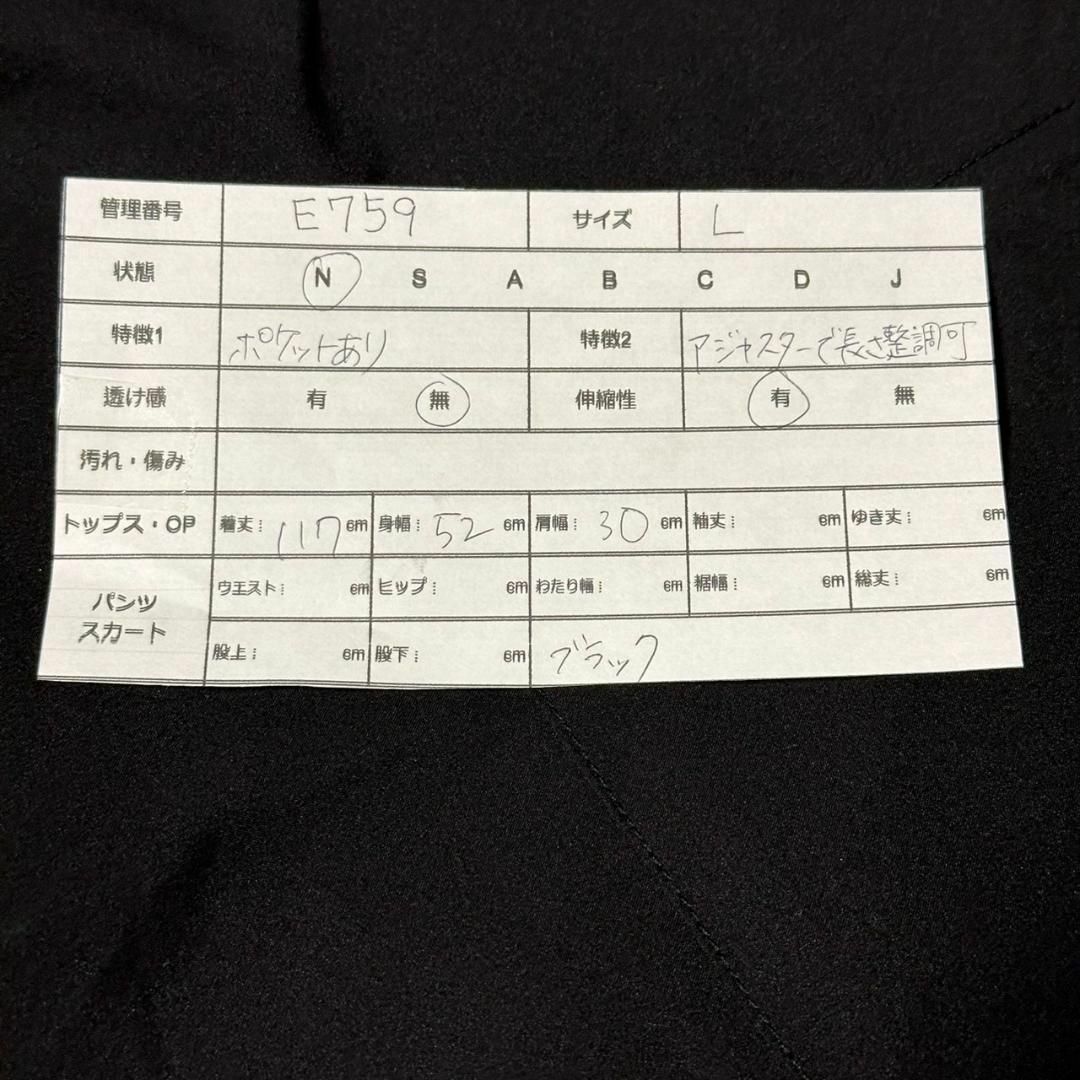 管理番号 E759 サイズ L
状態 N S A B C D J
特徴1 ポケットあり 特徴2 アジャスターで長さ整調可
透け感 有 無 伸縮性 有 無
汚れ・傷み
トップス・OP 着丈: 117 cm 身幅: 52 cm 肩幅: 30 cm 袖丈: cm ゆき丈: cm
パンツ スカート ウエスト: cm ヒップ: cm わたり幅: cm 裾幅: cm 総丈: cm
股上: cm 股下: cm ブラック